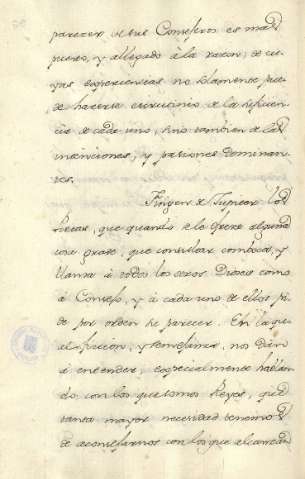 parecer de sus Consejeros es mas
puesto, y allegado à la razon; de cu-
yas experiencias no solamente pue-
de hacerse escrutinio de la suficien-
cia de cada uno, sino tambien de las
intenciones, y pasiones dominan-
tes.
Fingen de Jupiter los
Poetas, que quando se le ofrece alguna
cosa grave, que consultar comboca, y
llama à todos los otros Dioses como
à Consejo, y à cada uno de ellos pi-
de por orden su parecer. En la qual
ficcion, y semejanza, nos dan
à entender, especialmente hablan-
do con los que somos Reyes, que
tanta mayor necesidad tenemos
de aconsejarnos con los que alcanzan